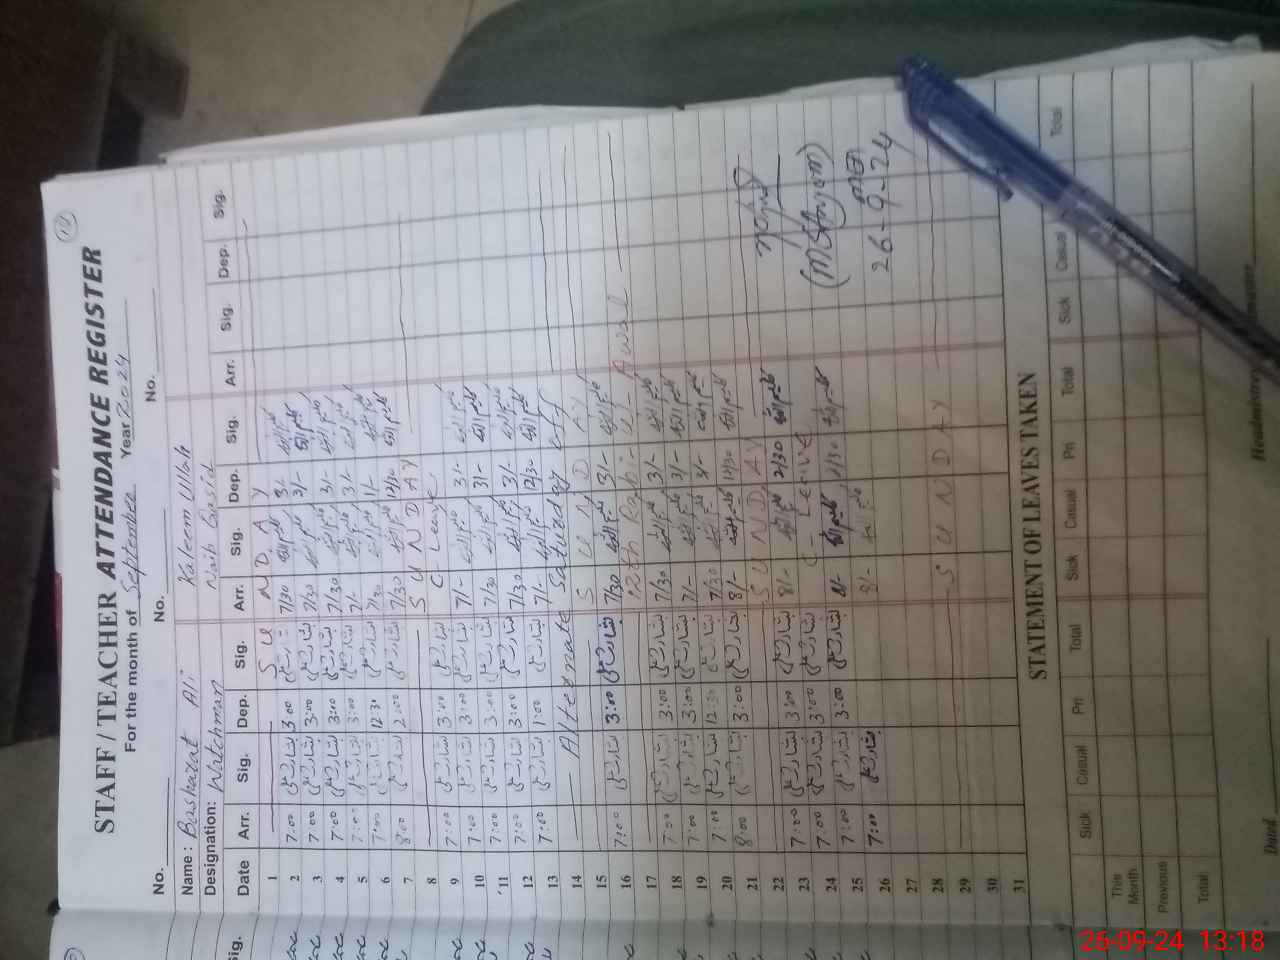 STAFF / TEACHER ATTENDANCE REGISTER 12
For the month of September Year 2024
No. No. No.
Name : Basharat Ali Kaleem Ullah
Designation: Watchman Naib Qasid
Date Arr. Sig. Dep. Sig. Arr. Sig. Dep. Sig. Arr. Sig. Dep. Sig.
1 S U N D A Y
2 7:00 بشارت علی 3:00 بشارت علی 7/30 3/-
3 7:00 بشارت علی 3:00 بشارت علی 7/30 3/-
4 7:00 بشارت علی 3:00 بشارت علی 7/30 3/-
5 7:00 بشارت علی 3:00 بشارت علی 7/- 3/-
6 7:00 بشارت علی 12:30 بشارت علی 7/30 1/-
7 8:00 بشارت علی 2:00 بشارت علی 7/30 12/30
8 S U N D A Y
9 7:00 بشارت علی 3:00 بشارت علی C- Leave
10 7:00 بشارت علی 3:00 بشارت علی 7/- 3/-
11 7:00 بشارت علی 3:00 بشارت علی 7/30 3/-
12 7:00 بشارت علی 3:00 بشارت علی 7/30 3/-
13 7:00 بشارت علی 1:00 بشارت علی 7/- 12/30
14 Alternate Saturday off
15 S U N D A Y
16 7:00 بشارت علی 3:00 بشارت علی 7/30 3/-
17 12th Rabi-ul-Awal
18 7:00 بشارت علی 3:00 بشارت علی 7/30 3/-
19 7:00 بشارت علی 3:00 بشارت علی 7/- 3/-
20 7:00 بشارت علی 12:30 بشارت علی 7/30 3/-
21 8:00 بشارت علی 3:00 بشارت علی 8/- 12/30
22 S U N D A Y
23 7:00 بشارت علی 3:00 بشارت علی 8/- 2/30
24 7:00 بشارت علی 3:00 بشارت علی C- Leave
25 7:00 بشارت علی 3:00 بشارت علی 8/- 2/30
26 7:00 بشارت علی 8/-
27
28
29 S U N D A Y
30
31
(MS Anjum)
26-9-24
STATEMENT OF LEAVES TAKEN
Sick Casual Pri Total Sick Casual Pri Total Sick Casual Total
This Month
Previous
Total
Dated Headmistress
Sig.
26-09-24 13:18